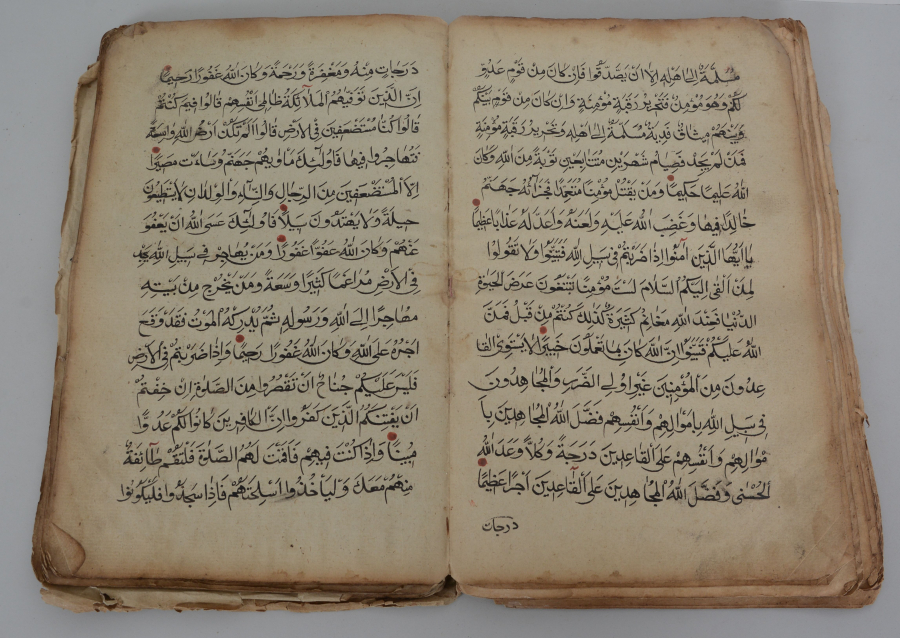 مُسَلَّمَةٌ اِلٰى اَهْلِهٖ اِلَّا اَنْ يَصَّدَّقُوا فَاِنْ كَانَ مِنْ قَوْمٍ عَدُوٍّ
لَكُمْ وَهُوَ مُؤْمِنٌ فَتَحْرِيرُ رَقَبَةٍ مُؤْمِنَةٍ وَاِنْ كَانَ مِنْ قَوْمٍ بَيْنَكُمْ
وَبَيْنَهُمْ مِيثَاقٌ فَدِيَةٌ مُسَلَّمَةٌ اِلٰى اَهْلِهٖ وَتَحْرِيرُ رَقَبَةٍ مُؤْمِنَةٍ
فَمَنْ لَمْ يَجِدْ فَصِيَامُ شَهْرَيْنِ مُتَتَابِعَيْنِ تَوْبَةً مِنَ اللّٰهِ وَكَانَ
اللّٰهُ عَلِيمًا حَكِيمًا وَمَنْ يَقْتُلْ مُؤْمِنًا مُتَعَمِّدًا فَجَزَآؤُهُ جَهَنَّمُ
خَالِدًا فِيهَا وَغَضِبَ اللّٰهُ عَلَيْهِ وَلَعَنَهُ وَاَعَدَّ لَهُ عَذَابًا عَظِيمًا
يَا اَيُّهَا الَّذِينَ آمَنُوا اِذَا ضَرَبْتُمْ فِى سَبِيلِ اللّٰهِ فَتَبَيَّنُوا وَلَا تَقُولُوا
لِمَنْ اَلْقٰى اِلَيْكُمُ السَّلَامَ لَسْتَ مُؤْمِنًا تَبْتَغُونَ عَرَضَ الْحَيٰوةِ
الدُّنْيَا فَعِنْدَ اللّٰهِ مَغَانِمُ كَثِيرَةٌ كَذٰلِكَ كُنْتُمْ مِنْ قَبْلُ فَمَنَّ
اللّٰهُ عَلَيْكُمْ فَتَبَيَّنُوا اِنَّ اللّٰهَ كَانَ بِمَا تَعْمَلُونَ خَبِيرًا لَا يَسْتَوِى الْقَا
عِدُونَ مِنَ الْمُؤْمِنِينَ غَيْرُ اُولِى الضَّرَرِ وَالْمُجَاهِدُونَ
فِى سَبِيلِ اللّٰهِ بِاَمْوَالِهِمْ وَاَنْفُسِهِمْ فَضَّلَ اللّٰهُ الْمُجَاهِدِينَ بِاَ
مْوَالِهِمْ وَاَنْفُسِهِمْ عَلَى الْقَاعِدِينَ دَرَجَةً وَكُلًّا وَعَدَ اللّٰهُ
الْحُسْنٰى وَفَضَّلَ اللّٰهُ الْمُجَاهِدِينَ عَلَى الْقَاعِدِينَ اَجْرًا عَظِيمًا
درجات
دَرَجَاتٍ مِنْهُ وَمَغْفِرَةً وَرَحْمَةً وَكَانَ اللّٰهُ غَفُورًا رَحِيمًا
اِنَّ الَّذِينَ تَوَفّٰيهُمُ الْمَلَآئِكَةُ ظَالِمِى اَنْفُسِهِمْ قَالُوا فِيمَ كُنْتُمْ
قَالُوا كُنَّا مُسْتَضْعَفِينَ فِى الْاَرْضِ قَالُوا اَلَمْ تَكُنْ اَرْضُ اللّٰهِ وَاسِعَةً
فَتُهَاجِرُوا فِيهَا فَاُولٰئِكَ مَاْوٰيهُمْ جَهَنَّمُ وَسَآءَتْ مَصِيرًا
اِلَّا الْمُسْتَضْعَفِينَ مِنَ الرِّجَالِ وَالنِّسَآءِ وَالْوِلْدَانِ لَا يَسْتَطِيعُونَ
حِيلَةً وَلَا يَهْتَدُونَ سَبِيلًا فَاُولٰئِكَ عَسَى اللّٰهُ اَنْ يَعْفُوَ
عَنْهُمْ وَكَانَ اللّٰهُ عَفُوًّا غَفُورًا وَمَنْ يُهَاجِرْ فِى سَبِيلِ اللّٰهِ يَجِدْ
فِى الْاَرْضِ مُرَاغَمًا كَثِيرًا وَسَعَةً وَمَنْ يَخْرُجْ مِنْ بَيْتِهٖ
مُهَاجِرًا اِلَى اللّٰهِ وَرَسُولِهِ ثُمَّ يُدْرِكْهُ الْمَوْتُ فَقَدْ وَقَعَ
اَجْرُهُ عَلَى اللّٰهِ وَكَانَ اللّٰهُ غَفُورًا رَحِيمًا وَاِذَا ضَرَبْتُمْ فِى الْاَرْضِ
فَلَيْسَ عَلَيْكُمْ جُنَاحٌ اَنْ تَقْصُرُوا مِنَ الصَّلٰوةِ اِنْ خِفْتُمْ
اَنْ يَفْتِنَكُمُ الَّذِينَ كَفَرُوا اِنَّ الْكَافِرِينَ كَانُوا لَكُمْ عَدُوًّا
مُبِينًا وَاِذَا كُنْتَ فِيهِمْ فَاَقَمْتَ لَهُمُ الصَّلٰوةَ فَلْتَقُمْ طَآئِفَةٌ
مِنْهُمْ مَعَكَ وَلْيَاْخُذُوا اَسْلِحَتَهُمْ فَاِذَا سَجَدُوا فَلْيَكُونُوا